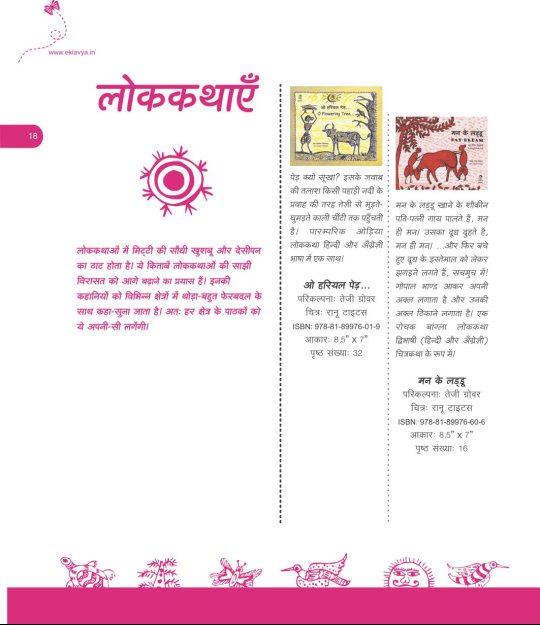 www.eklavya.in
लोककथाएँ
18
लोककथाओं में मिट्टी की सौंधी खुशबू और देसीपन
का ठाट होता है। ये किताबें लोककथाओं की साझी
विरासत को आगे बढ़ाने का प्रयास हैं। इनकी
कहानियों को विभिन्न क्षेत्रों में थोड़ा-बहुत फेरबदल के
साथ कहा-सुना जाता है। अतः हर क्षेत्र के पाठकों को
ये अपनी-सी लगेंगी।
ओ हरियल पेड़...
O Flowering Tree...
पेड़ क्यों सूखा? इसके जवाब
की तलाश किसी पहाड़ी नदी के
प्रवाह की तरह तेज़ी से मुड़ते-
घुमड़ते काली चींटी तक पहुँचती
है। पारम्परिक ओड़िया
लोककथा हिन्दी और अँग्रेज़ी
भाषा में एक साथ।
ओ हरियल पेड़...
परिकल्पनाः तेजी ग्रोवर
चित्रः रानू टाइटस
ISBN: 978-81-89976-01-9
आकारः 8.5" x 7"
पृष्ठ संख्याः 32
मन के लड्डू
PAY DREAM
मन के लड्डू खाने के शौकीन
पति-पत्नी गाय पालते हैं, मन
ही मन। उसका दूध दुहते हैं,
मन ही मन। ...और फिर बचे
हुए दूध के इस्तेमाल को लेकर
झगड़ने लगते हैं, सचमुच में।
गोपाल भाण्ड आकर अपनी
अक्ल लगाता है और उनकी
अक्ल ठिकाने लगाता है। एक
रोचक बांग्ला लोककथा
द्विभाषी (हिन्दी और अँग्रेज़ी)
चित्रकथा के रूप में।
मन के लड्डू
परिकल्पनाः तेजी ग्रोवर
चित्रः रानू टाइटस
ISBN: 978-81-89976-60-6
आकारः 8.5" x 7"
पृष्ठ संख्याः 16